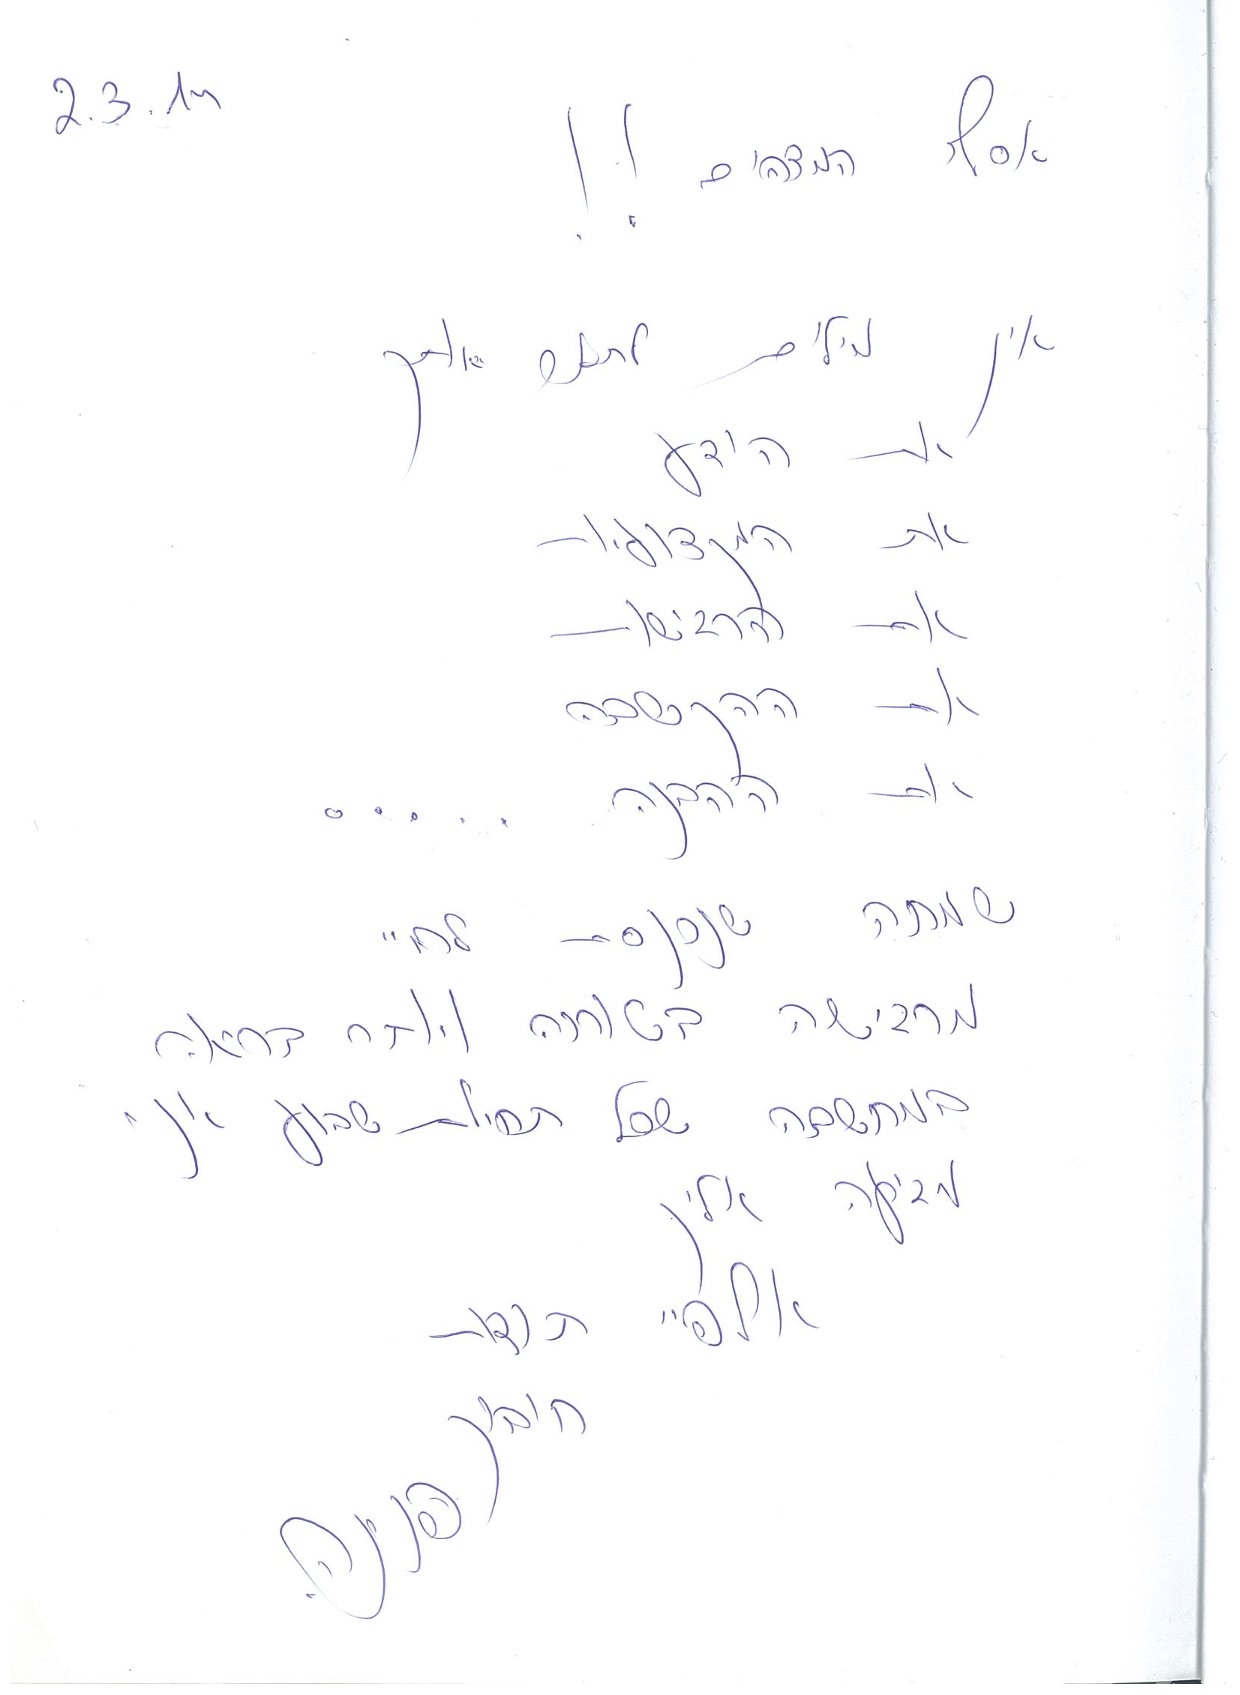 2.3.14
אסף המדהים !!
אין מילים לתאר אותך
את הידע
את המקצועיות
את הרגישות
את ההקשבה
את ההבנה .....
שמחה שנכנסת לחיי
מרגישה בטוחה ויותר בריאה
במחשבה שכל תחילת שבוע אני
מגיעה אליך
אלפיי תודות
חיבוק
פנינה